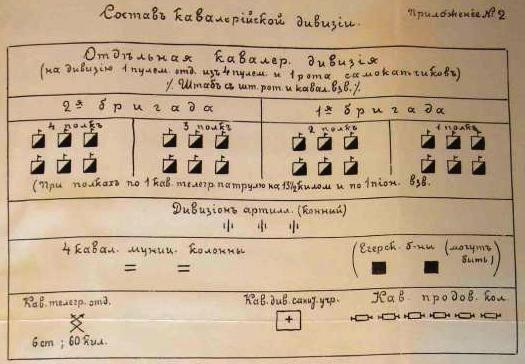 Составъ кавалерійской дивизіи.
Приложеніе №2
Отдѣльная кавалер. дивизія
(на дивизію 1 пулем. отд. изъ 4 пулем. и 1 рота самокатчиковъ)
% Штабъ съ шт. рот. и кавал. взв. %
2ая бригада
1ая бригада
4 полкъ
3 полкъ
2 полкъ
1 полкъ
(При полкахъ по 1 кав. телегр. патрулю на 13½ килом. и по 1 піон. взв.
Дивизіонъ артилл. (конный)
4 кавал. муниц. колонны
(Егерск. б-ни (могутъ
быть)
Кав. телегр. отд.
Кав. див. санит. учр.
Кав. продов. кол.
6 ст; 60 кил.